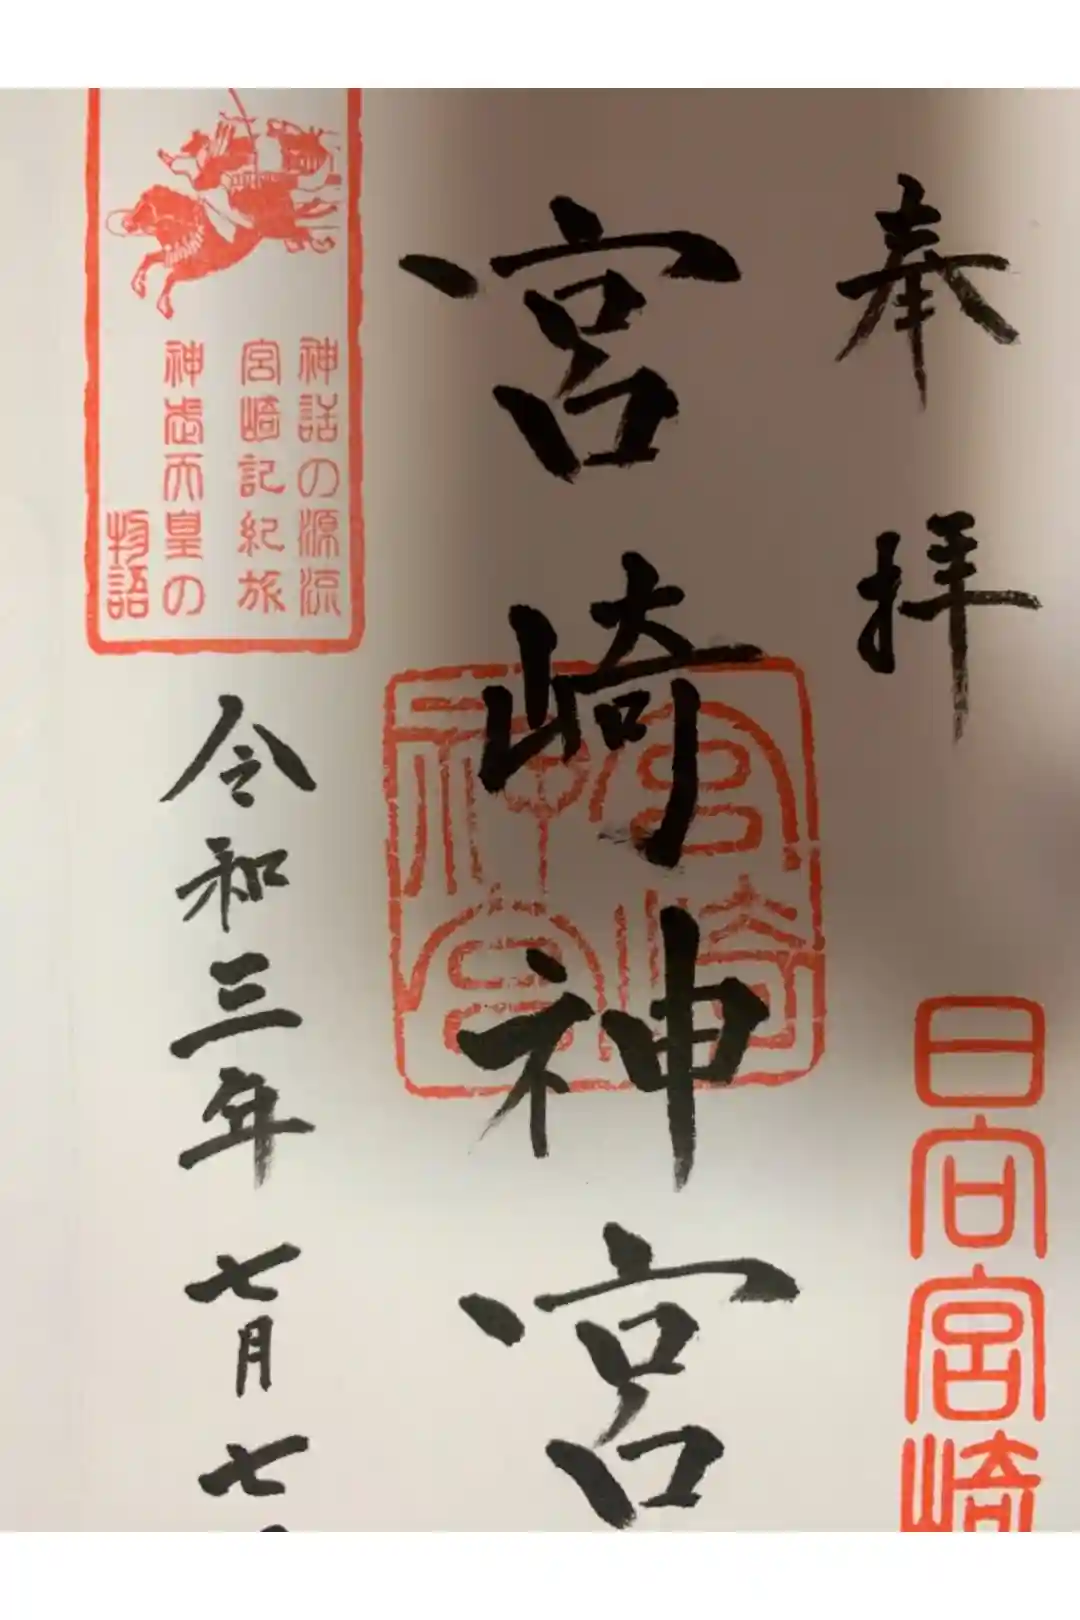 奉拝
日向宮崎
宮崎神宮
宮崎
神宮
神話の源流
宮崎記紀旅
神武天皇の
物語
令和三年七月七